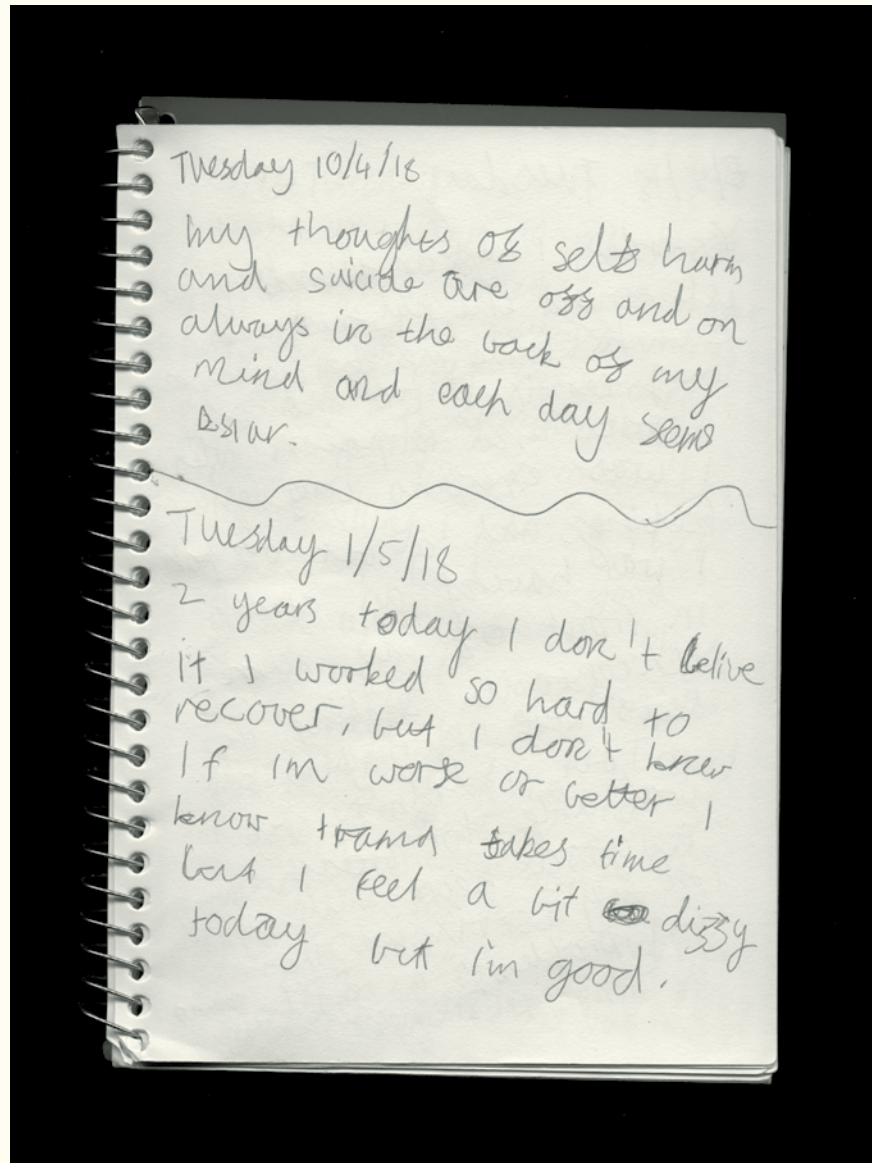 Tuesday 10/4/18
my thoughts of self harm
and suicide are off and on
always in the back of my
mind and each day seems
Tuesday 1/5/18
2 years today I don't belive
it I worked so hard to
recover, but I don't know
If im worse or better I
know tramd takes time
but I feel a bit dizzy
today but i'm good.